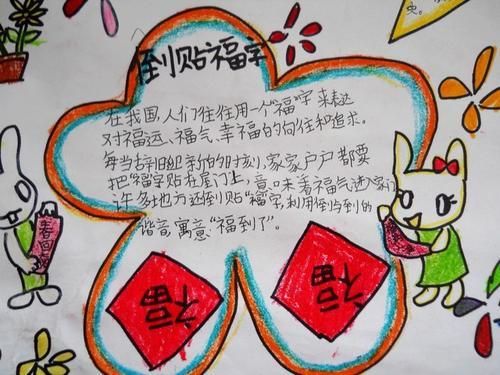 倒贴福字
在我国,人们往往用一个“福”字来表达
对福运、福气、幸福的向往和追求。
每当辞旧迎新的时刻,家家户户都要
把“福”字贴在屋门上,意味着福气进入家门
许多地方还倒贴“福”字,利用倒与到的
谐音,寓意“福到了”。
春回
福
福